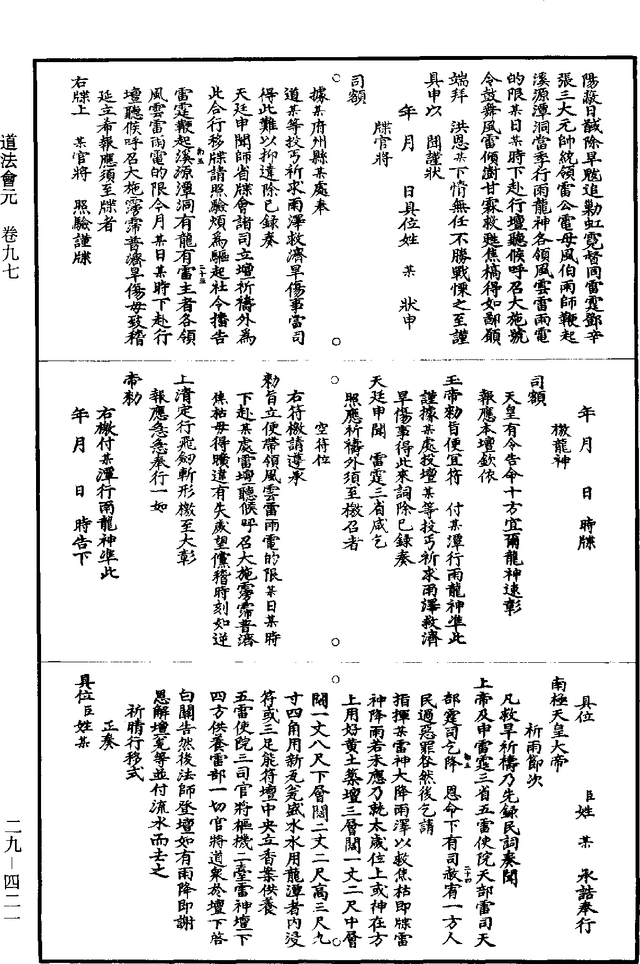 陽救日誠除早魃追勦虹霓督同雷霆鄧辛
張三大元帥統領雷公電母風伯雨師鞭起
溪源潭洞當季行雨龍神各領風雲雷雨電
的限某日某時下赴行壇聽候呼召大施號
令鼓舞風雷傾澍甘霖救甦焦槁得如鄙願
端拜　洪恩某下情無任不勝戰慄之至謹
具申以　聞謹狀
年　月　日具位姓　某　狀申
牒官將
司額
據某府州縣某處奉
道某等投丐祈求雨澤救濟旱傷事當司
得此難以抑違除已錄奏
天廷申聞師省牒會諸司立壇祈禱外爲
此合行移牒請照驗煩爲驅起社令擋告
雷霆鞭起溪源潭洞有龍有雷主者各領
風雲雷雨電的限今月某日某時下赴行
壇聽候呼召大施霶霈普濟旱傷毋致稽
延立希報應須至牒者
右牒上　某官將　照驗謹牒
年　月　日　時牒
檄龍神
司額
天皇有令告命十方宜爾龍神速彰
報應本壇欽依
玉帝勅旨便宜符　付某潭行雨龍神準此
謹據某處投壇某等投丐祈求雨澤救濟
旱傷事得此來詞除已錄奏
天廷申聞　雷霆三省咸乞
照應祈禱外須至檄召者
空符位
右符檄請遵承
勅旨立便帶領風雲雷雨電的限某日某時
下赴某處雷壇聽候呼召大施霶霈普濟
焦枯毋得曠違有失慮望儻稽時刻如逆
上清定行飛劒斬形檄至大彰
報應急急奉行一如
帝勅
右檄付某潭行雨龍神準此
年　月　日　時告下
具位　臣姓　某　承誥奉行
南極天皇大帝
祈雨節次
凡救旱祈禱乃先錄民詞奏聞
上帝及申雷霆三省五雷使院天部雷司天
部霆司乞降　恩命下有司赦宥一方人
民過愆罪咎然後乞請
指揮某雷神大降雨澤以救焦枯即牒雷
神降雨若未應乃就太歲位上或神在方
上用好黃土築壇三層闊一丈二尺中層
闊一丈八尺下層闊二丈二尺高三尺九
寸四角用新瓦瓮盛水水用龍潭者內浸
符或三足能符壇中央立香案供養
五雷使院三司官將樞機二臺雷神壇下
四方供養雷部一切官將道衆於壇下啓
白關告然後法師登壇如有雨降即謝
恩解壇瓮等並付流水而去之
祈晴行移式
正奏
具位臣姓某
道法會元　卷九七
二九－四二一